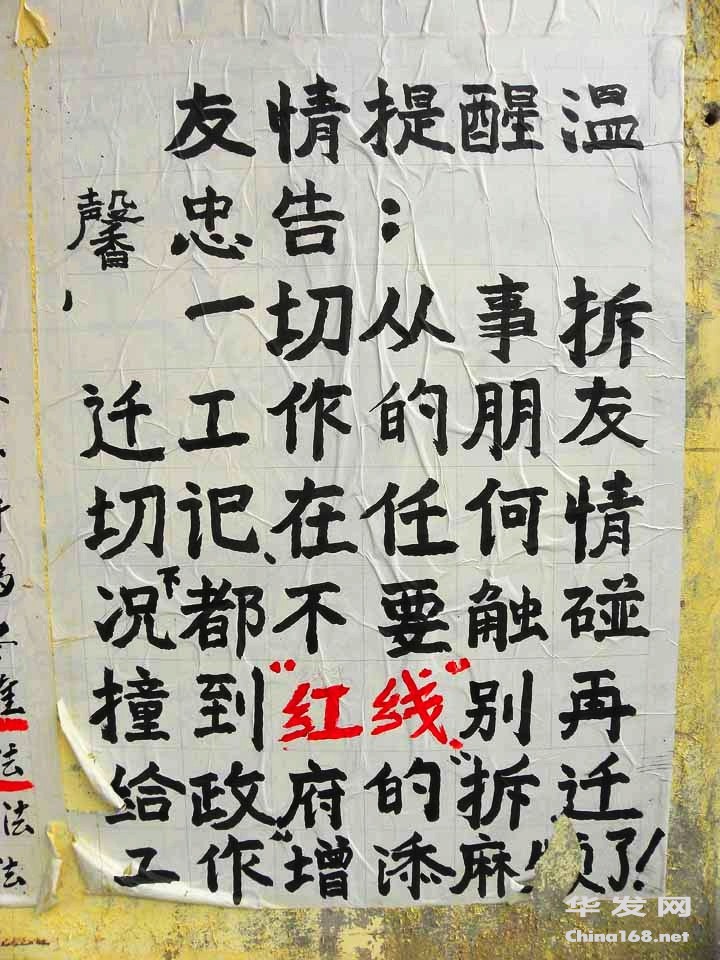 友情提醒温
馨忠告：
，一切从事拆
迁工作的朋友
切记、在任何情
况下都不要触碰
撞到“红线”、别再
给政府的“拆迁
工作”增添麻烦了！
法
法
法
华发网
China168.net